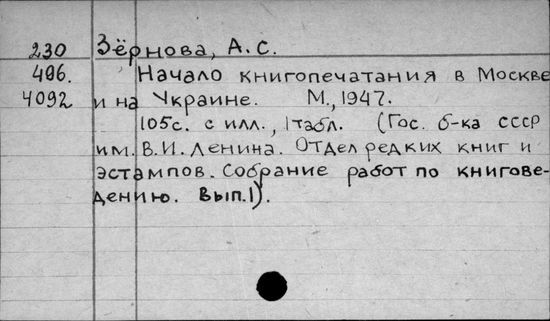 230 Зёрнова, А.С.
496. Начало книгопечатания в Москве
4092 и на Украине. М., 1947.
105с. с илл., 1 табл. (Гос. б-ка СССР
им. В.И. Ленина. Отдел редких книг и
эстампов. Собрание работ по книгове-
дению. Вып.1).